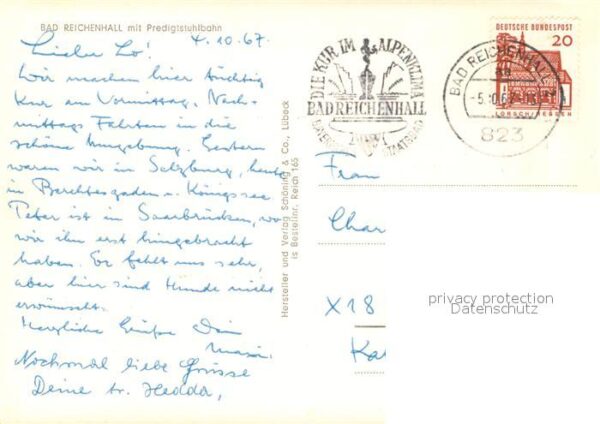 BAD REICHENHALL mit Predigtstuhlbahn
4.10.67.
Liebe Lo!
Wir machen hier tüchtig
Kur am Vormittag. Nach-
mittags Fahrten in die
schöne Umgebung. Gestern
waren wir in Salzburg, heute
in Berchtesgaden u. Königssee
Peter ist in Saarbrücken, wo
wir ihn erst hingebracht
haben. Er fehlt uns sehr,
aber hier sind Hunde nicht
erwünscht.
Herzliche Grüße Dein
Nochmal liebe Grüsse
Deine tr. Hedda,
Hersteller und Verlag Schöning & Co., Lübeck
is Bestellnr. Reich 165
DIE KUR IM ALPENKLIMA
BAD REICHENHALL
STAATSBAD
DEUTSCHE BUNDESPOST
20
LORSCH/HESSEN
BAD REICHENHALL
823
Frau
Char
X18
Ka
privacy protection
Datenschutz